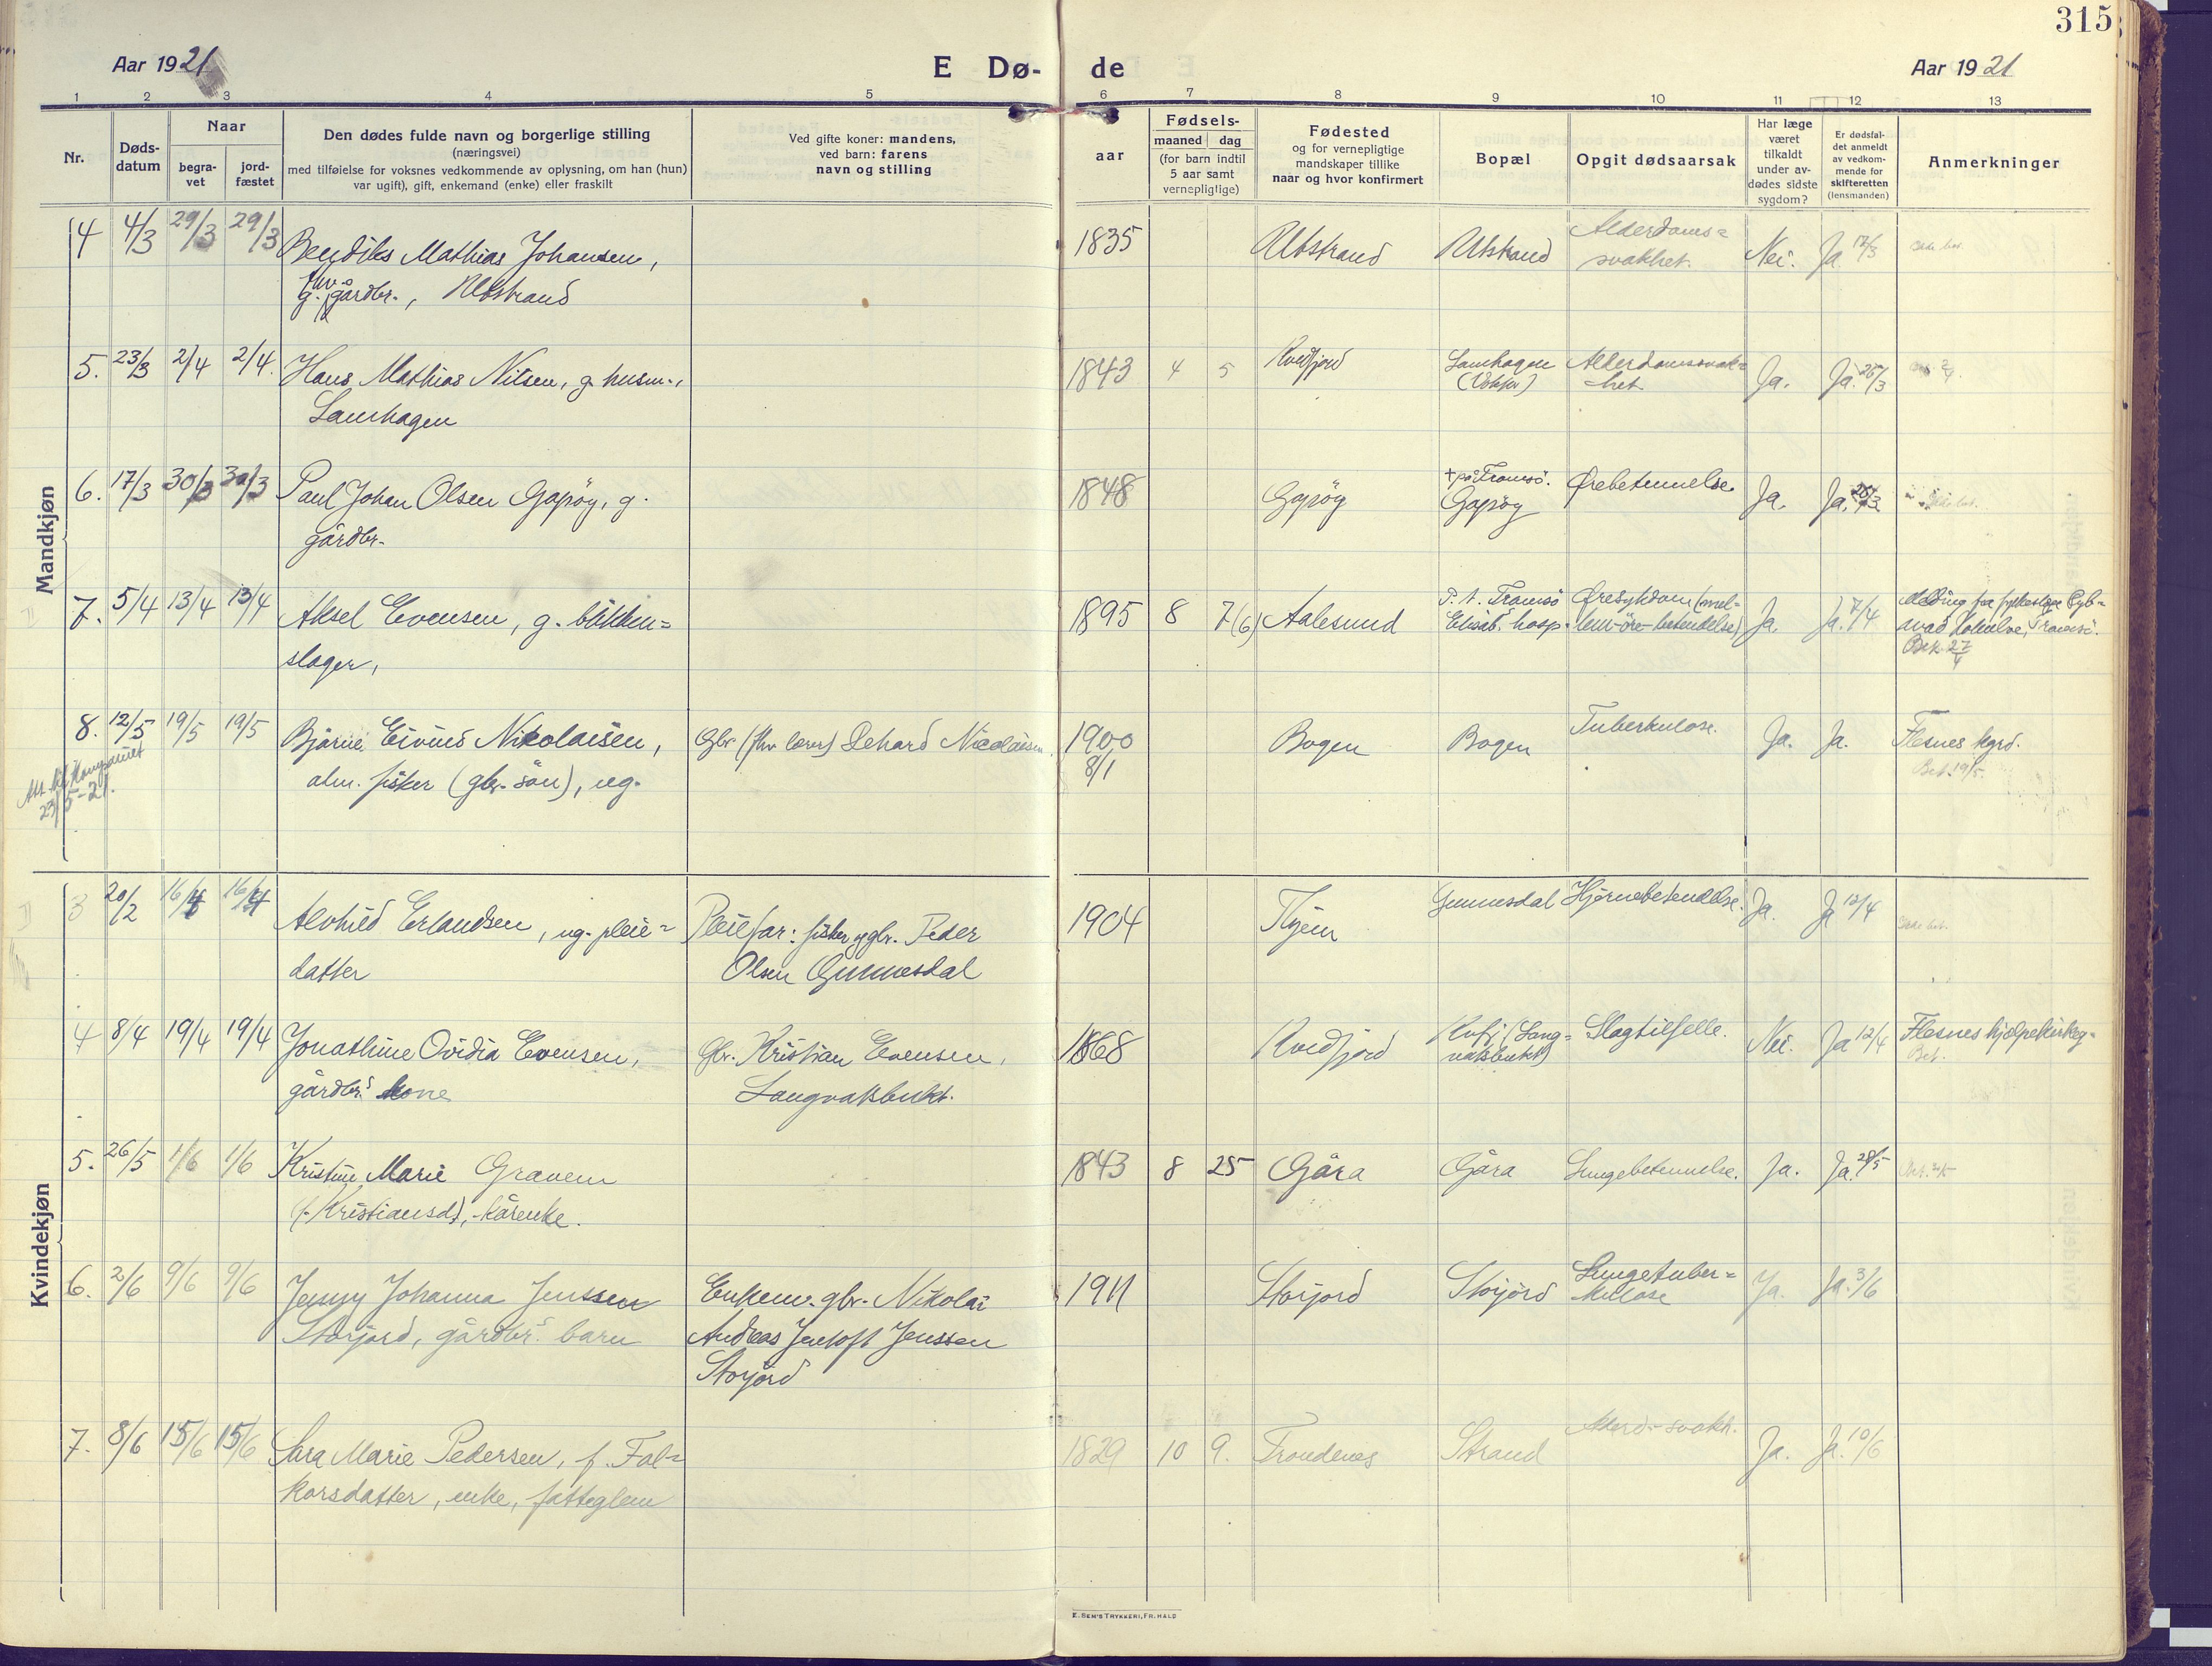 315
Aar 1921
E Dø- de
Aar 1921
1 2 3 4 5 6 7 8 9 10 11 12 13
Nr.
Døds-
datum
Naar
begra-
vet
jord-
fæstet
Den dødes fulde navn og borgerlige stilling
(næringsvei)
med tilføielse for voksnes vedkommende av oplysning, om han (hun)
var ugift), gift, enkemand (enke) eller fraskilt
Ved gifte koner: mandens,
ved barn: farens
navn og stilling
aar
Fødsels-
maaned dag
(for barn indtil
5 aar samt
vernepligtige)
Fødested
og for vernepligtige
mandskaper tillike
naar og hvor konfirmert
Bopæl
Opgit dødsaarsak
Har læge
været
tilkaldt
under av-
dødes sidste
sygdom?
Er dødsfal-
det anmeldt
av vedkom-
mende for
skifteretten
(lensmanden)
Anmerkninger
Mandkjøn
4 4/3 29/3 29/3 Bendiks Mathias Johansen,
g. fhv. gårdbr., Utstrand
1835 Utstrand Utstrand Alderdoms=
svakhet. Nei. Ja 17/3
5. 23/3 2/4 2/4. Hans Mathias Nilsen, g. husm.,
Lamhagen
1843 4 5 Kvedfjord Lamhagen Alderdomssvak=
het Ja. Ja. 26/3
6. 17/3 30/3 30/3 Paul Johan Olsen Gapøy, g.
gårdbr.
1848 Gapøy + på Tromsö.
Gapøy Ørebetennelse Ja. Ja.
7. 5/4 13/4 13/4 Aksel Evensen, g. blikken=
slager,
1895 8 7(6) Aalesund P. t. Tromsö
Elisab. hosp. Øresykdom (mel=
lem-öre-betendelse) Ja. Ja. 7/4
Tromsö.
Bek. 27/4
8. 12/5 19/5 19/5 Bjarne Eivind Nikolaisen,
alm. fisker (gbr. sön), ug.
Gbr. (fhv lærer) Dehard Nicolaisen
1900
8/1 Bogen Bogen Tuberkulose. Ja. Ja. Flesnes kgrd.
Bet. 19/5.
23/5-21.
Kvindekjøn
3 20/2 16/4 16/4 Alvhild Erlandsen, ug. pleie=
datter
Pleiefar: fisker og gbr. Peder
Olsen Gunnesdal
1904 Gunnesdal Hjernebetendelse. Ja. Ja 12/4
4 8/4 19/4 19/4 Jonathine Ovidia Evensen,
gårdbr.s kone
Gbr. Kristian Evensen,
Langvatsbukt.
1868 Kvedfjord Kvfj. (Lang=
vatsbukt) Slagtilfelle. Nei. Ja 12/4 Flesnes hjelpekirkeg.
Bet.
5. 26/5 1/6 1/6 Kristine Marie Gravem
(f. Kristiansd), kårenke.
1843 8 25 Gåra Gåra Lungebetennelse. Ja. Ja. 28/5
6. 2/6 9/6 9/6 Jenny Johanna Jenssen
Storjord, gårdbr.s barn
Enkem. gbr. Nikolai
Andreas Jentoft Jenssen
Storjord
1911 Storjord Storjord Lungetuber=
kulose Ja. Ja. 3/6
7. 8/6 15/6 15/6 Sara Marie Pedersen, f. Fal=
korsdatter, enke, fattiglem
1829 10 9. Trondenes Strand Alderd.-svakh. Ja. Ja. 10/6
E. SEM'S TRYKKERI, FR.HALD